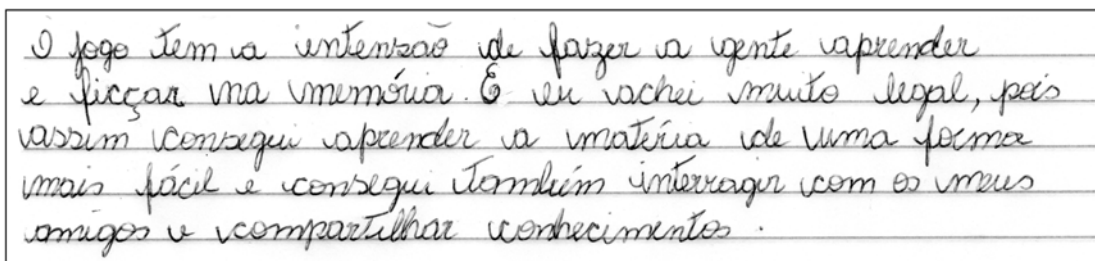 O jogo tem a intenzão de fazer a gente aprender
e ficçar na memória. E eu achei muito legal, pois
assim consegui aprender a matéria de uma forma
mais fácil e consegui também interragir com os meus
amigos e compartilhar conhecimentos.